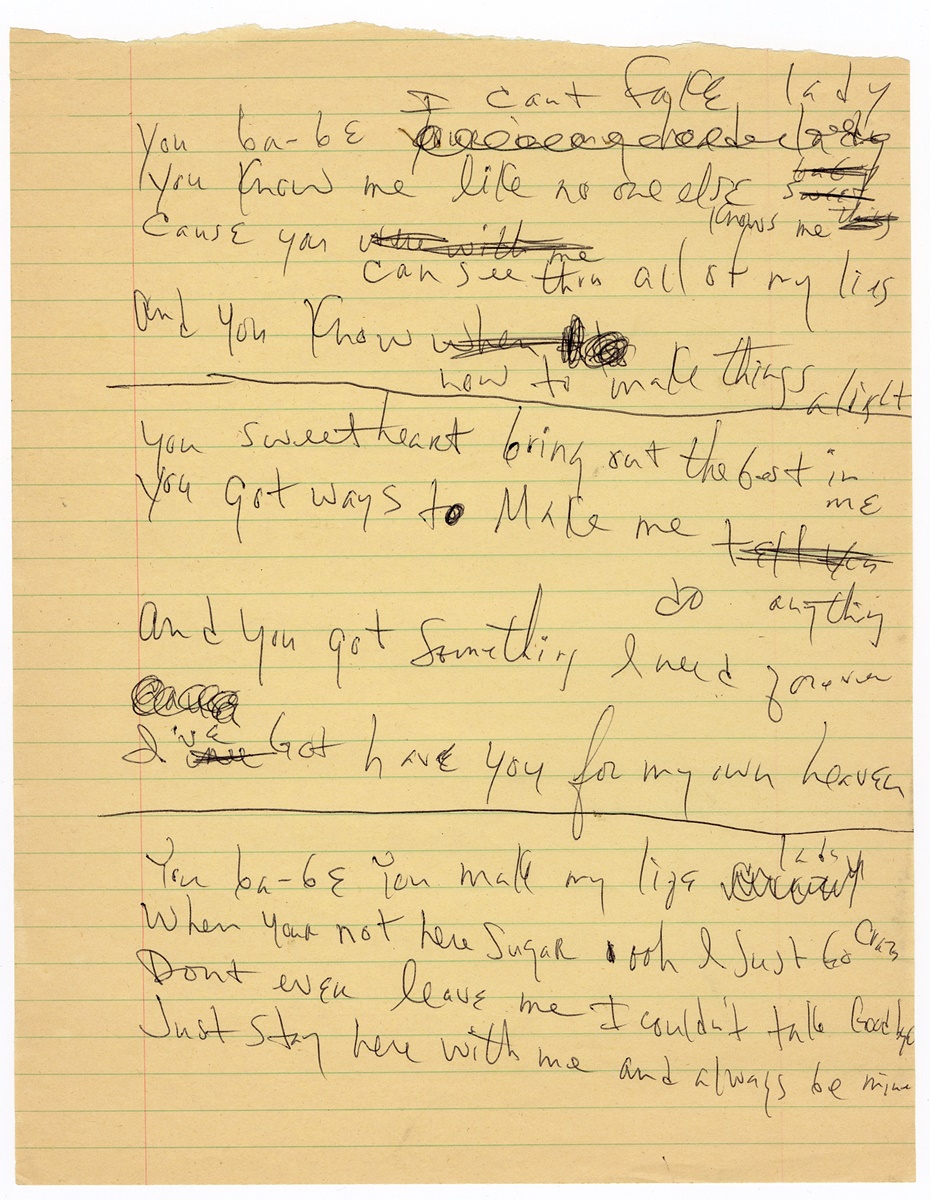 I cant fake lady
You ba-bE
You Know me like no one else
baby
sweet
Knows me things
CausE you
can see thru all of my lies
And You Know when
how to make things alight
You sweetheart bring out the best in
mE
You Got ways to Make me tell you
do anything
And You got Something I need forever
I'vE Got havE You for my own heaven
You ba-bE You make my life lady
When Your not here Sugar ooh I Just Go Crazy
Dont even leave me I couldn't take Goodbye
Just Stay here with me and always be mine